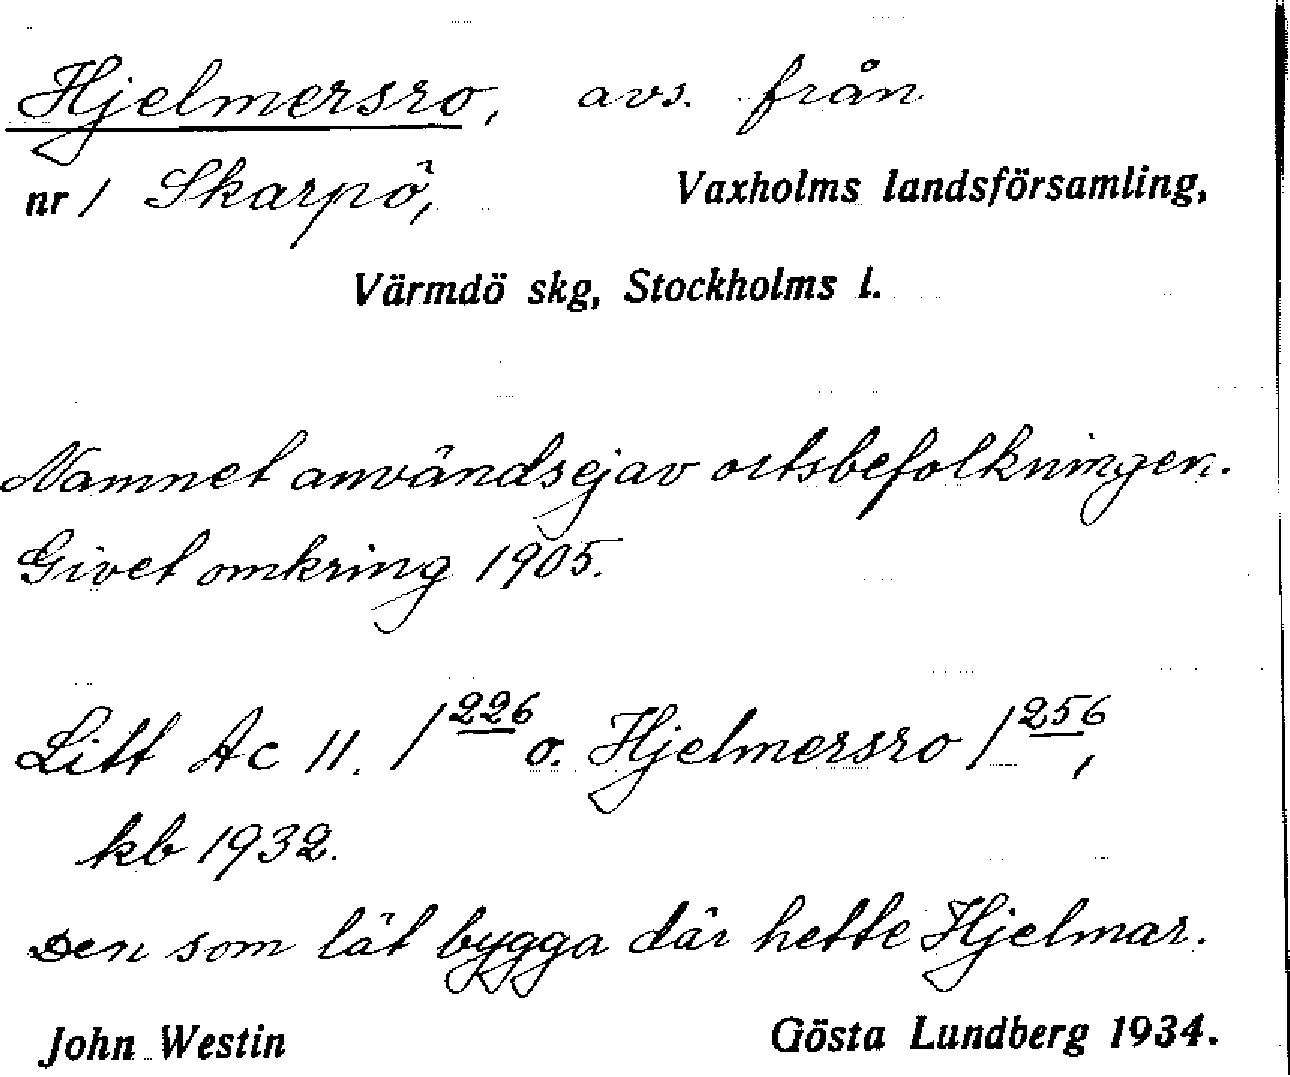 Hjelmersro, avs. från
nr 1 Skarpö, Vaxholms landsförsamling,
Värmdö skg, Stockholms l.
Namnet användes ej av ortsbefolkningen.
Givet omkring 1905.
Litt Ac 11. 1 226 o. Hjelmersro 1 256,
kb 1932.
Den som lät bygga där hette Hjelmar.
John Westin Gösta Lundberg 1934.